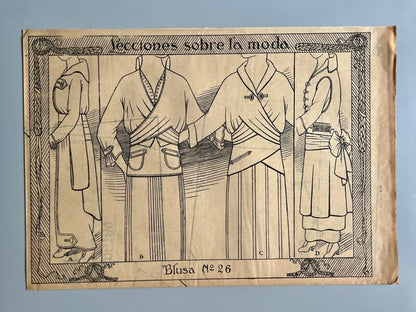 Lecciones sobre la moda
A B C D
Blusa Nº 26